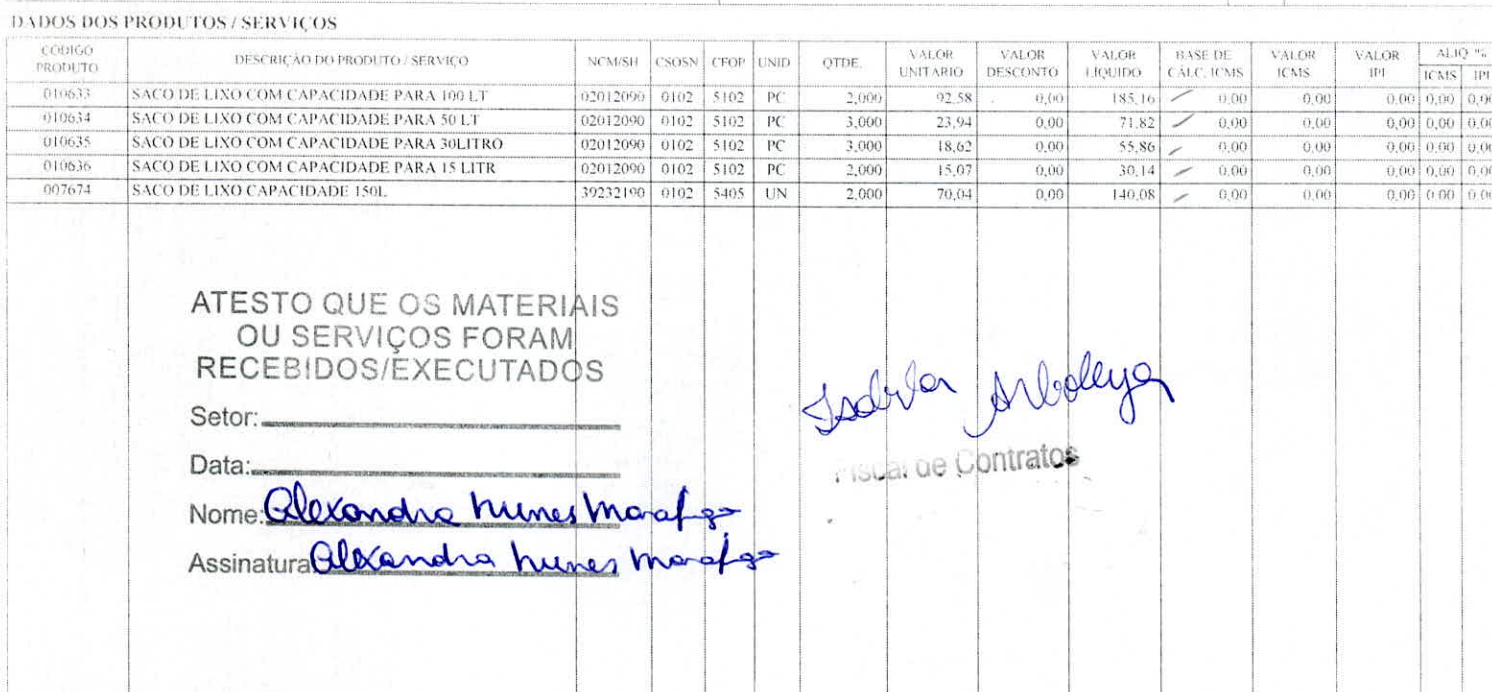 DADOS DOS PRODUTOS / SERVIÇOS
CÓDIGO PRODUTO DESCRIÇÃO DO PRODUTO / SERVIÇO NCM/SH CSOSN CFOP UNID QTDE. VALOR UNITARIO VALOR DESCONTO VALOR LÍQUIDO BASE DE CÁLC. ICMS VALOR ICMS VALOR IPI ALIQ. % ICMS IPI
010633 SACO DE LIXO COM CAPACIDADE PARA 100 LT 02012090 0102 5102 PC 2,000 92,58 0,00 185,16 0,00 0,00 0,00 0,00 0,00
010634 SACO DE LIXO COM CAPACIDADE PARA 50 LT 02012090 0102 5102 PC 3,000 23,94 0,00 71,82 0,00 0,00 0,00 0,00 0,00
010635 SACO DE LIXO COM CAPACIDADE PARA 30LITRO 02012090 0102 5102 PC 3,000 18,62 0,00 55,86 0,00 0,00 0,00 0,00 0,00
010636 SACO DE LIXO COM CAPACIDADE PARA 15 LITR 02012090 0102 5102 PC 2,000 15,07 0,00 30,14 0,00 0,00 0,00 0,00 0,00
007674 SACO DE LIXO CAPACIDADE 150L 39232190 0102 5405 UN 2,000 70,04 0,00 140,08 0,00 0,00 0,00 0,00 0,00
ATESTO QUE OS MATERIAIS
OU SERVIÇOS FORAM
RECEBIDOS/EXECUTADOS
Setor:
Data:
Nome: Alexandra Nunes Marafigo
Assinatura Alexandra Nunes Marafigo
Isabela Arboleya
Fiscal de Contratos